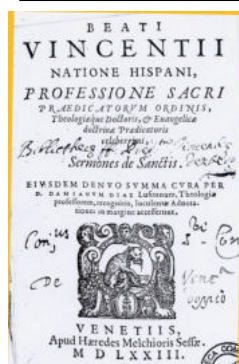 BEATI
VINCENTII
NATIONE HISPANI,
PROFESSIONE SACRI
PRAEDICATORVM ORDINIS,
Theologiæque Doctoris, & Euangelicæ
doctrinæ Prædicatoris
celeberrimi,
Sermones de Sanctis.
EIVSDEM DENVO SVMMA CVRA PER
D. DAMIANVM DIAZ Lusitanum, Theologiæ
professorem, recogniti, 
in margine accesserunt.
De
VENETIIS,
Apud Hæredes Melchioris Sessæ.
M D LXXIII.